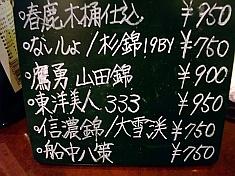 ・春鹿木桶仕込 ¥950
・ないしょ/杉錦19BY ¥750
・鷹勇山田錦 ¥900
・東洋美人333 ¥950
・信濃錦/大雪渓 ¥750
・船中八策 ¥750